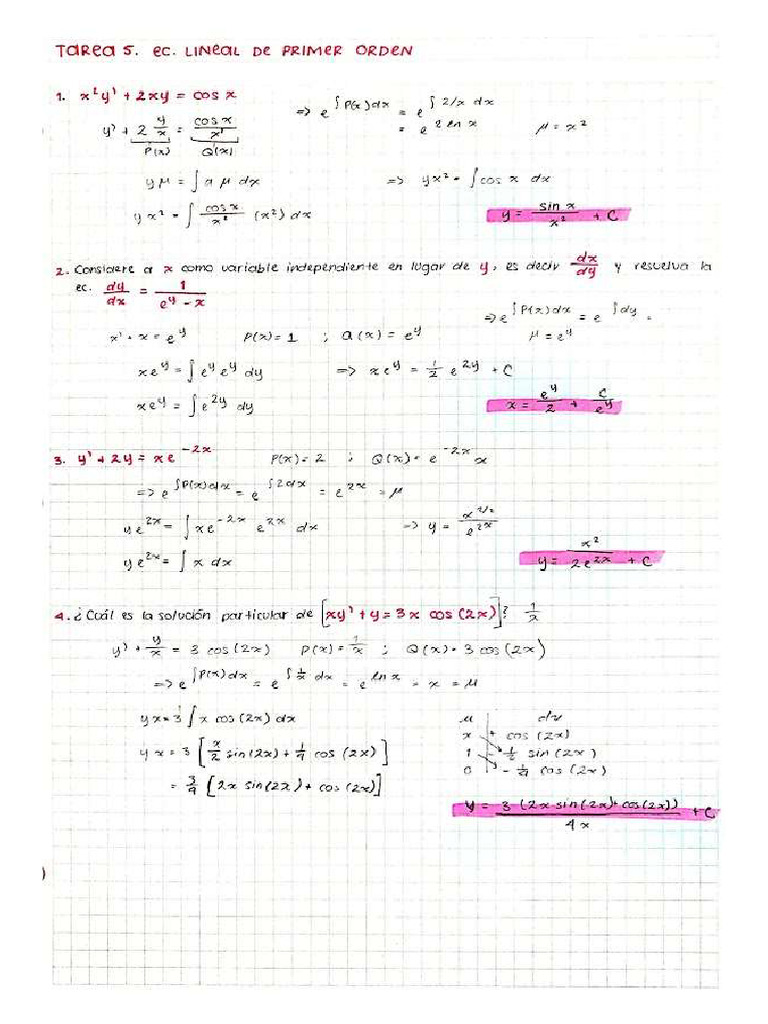 TAREA 5. EC. LINEAL DE PRIMER ORDEN
1. x²y' + 2xy = cos x
=> e^∫P(x)dx = e^∫2/x dx
y' + 2 y/x = cos x/x²
= e^2 ln x    μ = x²
P(x)    Q(x)
yμ = ∫Q μ dx    => yx² = ∫cos x dx
yx² = ∫ cos x/x² (x²) dx    y = sin x/x² + C
2. Considere a x como variable independiente en lugar de y, es decir dx/dy y resuelva la
ec. dy/dx = 1/(e^y - x)
=> e^∫P(x)dx = e^∫dy =
x' + x = e^y    P(x) = 1 ; Q(x) = e^y    μ = e^y
xe^y = ∫e^y e^y dy    => xe^y = 1/2 e^2y + C
xe^y = ∫e^2y dy    x = e^y/2 + C/e^y
3. y' + 2y = xe^-2x    P(x) = 2 ; Q(x) = e^-2x x
=> e^∫P(x)dx = e^∫2dx = e^2x = μ
ye^2x = ∫xe^-2x e^2x dx    => y = x²/2/e^2x
ye^2x = ∫x dx    y = x²/2e^2x + C
4. ¿Cuál es la solución particular de [xy' + y = 3x cos (2x)]? 1/x
y' + y/x = 3 cos (2x)    P(x) = 1/x ; Q(x) = 3 cos (2x)
=> e^∫P(x)dx = e^∫1/x dx = e^ln x = x = μ
yx = 3∫x cos (2x) dx    μ    dv
x + cos (2x)
yx = 3[x/2 sin(2x) + 1/4 cos (2x)]    1 - 1/2 sin (2x)
0 - 1/4 cos (2x)
= 3/4 [2x sin(2x) + cos (2x)]
y = 3 (2x sin(2x) + cos(2x))/4x + C